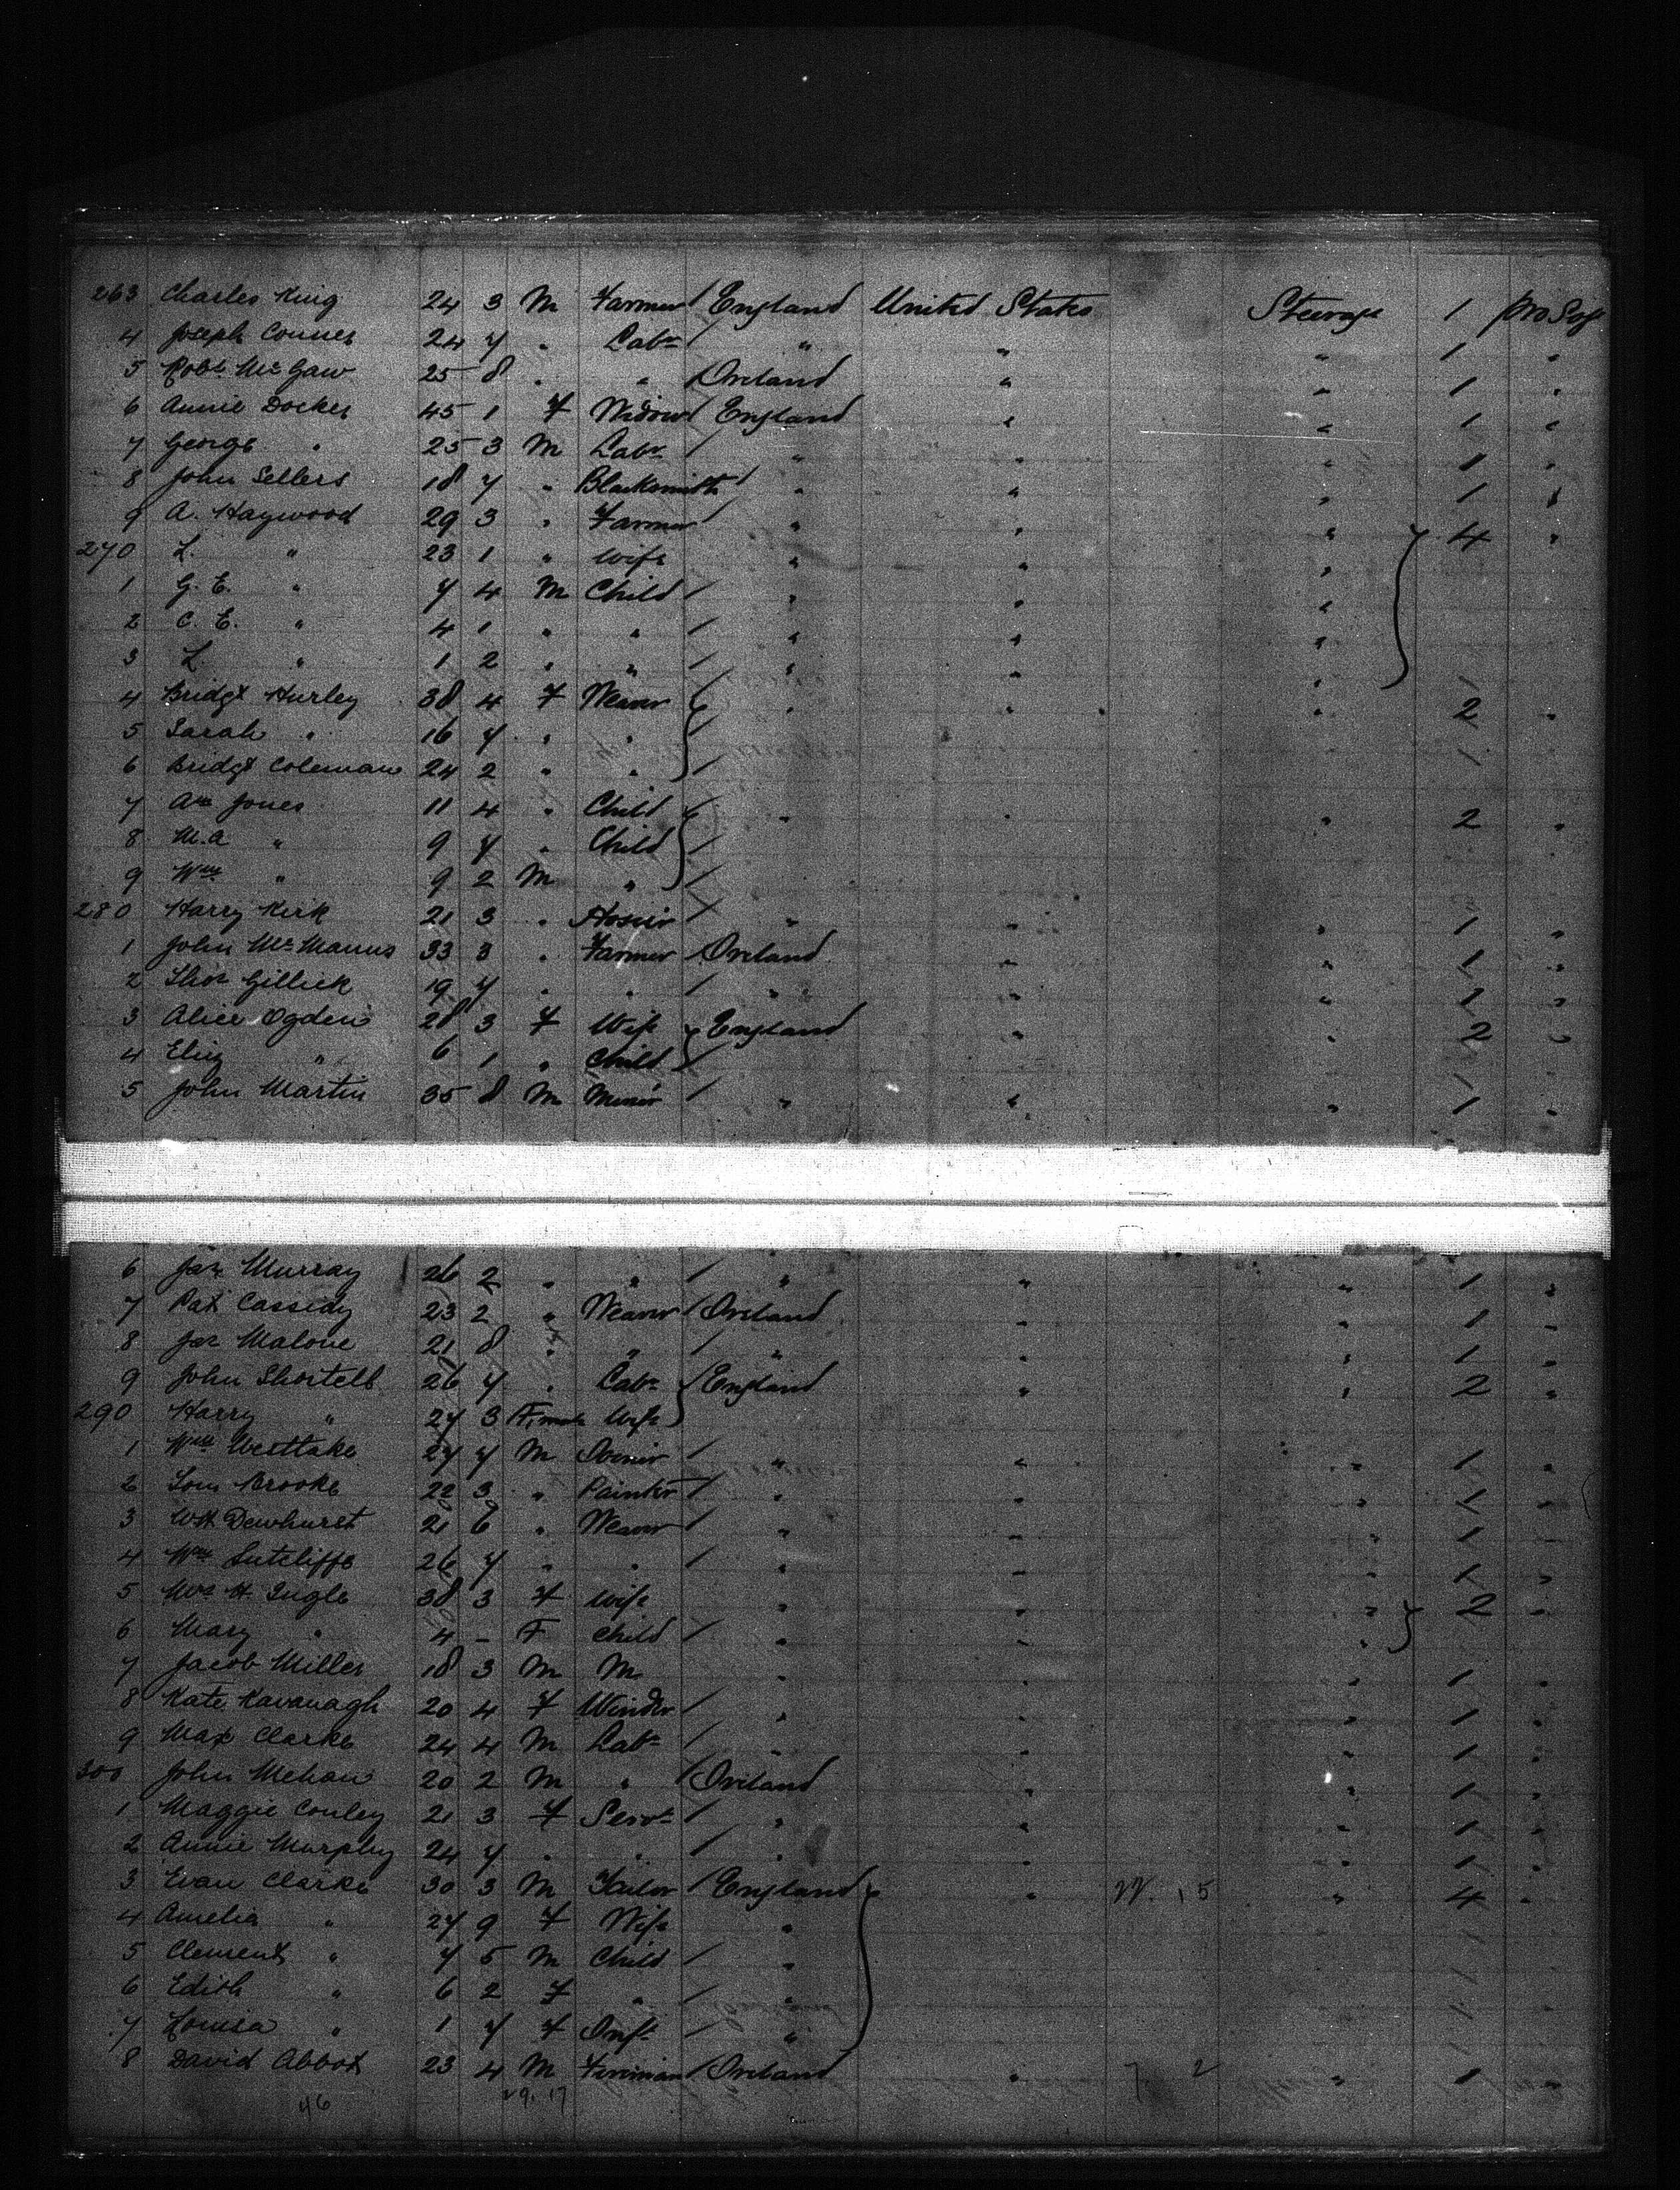 263 Charles King 24 3 M Farmer England United States Steerage 1 pro Sojn
4 Joseph Conner 24 7 " Labr " " " 1 "
5 Robt McGaw 25 8 " " Ireland " " 1 "
6 Annie Docker 45 1 F Widow England " " 1 "
7 George " 25 3 M Labr " " " 1 "
8 John Sellers 18 7 " Blacksmith " " " 1 "
9 A. Haywood 29 3 " Farmer " " " 4 "
270 L. " 23 1 " Wife " " "
1 G. E. " 7 4 M Child " " "
2 C. E. " 4 1 " " " " "
3 L. " 1 2 " " " " "
4 Bridgt Hurley 38 4 F Weaver " " " 2 "
5 Sarah " 16 7 " "
6 Bridgt Coleman 24 2 " "
7 Ann Jones 11 4 " Child " " " 2 "
8 M.A " 9 7 " Child
9 Wm " 9 2 M "
280 Harry Kirk 21 3 " Hosier " " 1 "
1 John McManus 33 3 " Farmer Ireland " " 1 "
2 Thos Gillick 19 7 " " " " " 1 "
3 Alice Ogden 28 3 F Wife England " 2 "
4 Eliz " 6 1 " Child
5 John Martin 35 8 M Miner " " " 1 "
6 Jas Murray 26 2 " " " " " 1 "
7 Pat Cassidy 23 2 " Weaver Ireland " 1 "
8 Jas Malone 21 8 " " " " " 1 "
9 John Shortell 26 7 " Labr England " " 2 "
290 Harry " 27 3 Female Wife
1 Wm Westlake 27 7 M " " 1 "
2 Tom Brooke 22 3 " Painter " " " 1 "
3 WH Dewhurst 21 6 " Weaver " " " 1 "
4 Wm Sutcliffe 26 7 " " " " 1 "
5 Mrs H. Ingle 38 3 F Wife " " " 2 "
6 Mary " 4 - F Child " " "
7 Jacob Miller 18 3 M M " " " 1 "
8 Kate Kavanagh 20 4 F Winder " " " 1 "
9 Max Clarke 24 4 M Labr " " " 1 "
300 John Mehan 20 2 M " Ireland " " 1 "
1 Maggie Conley 21 3 F Servt " " " 1 "
2 Annie Murphy 24 7 " " " " " 1 "
3 Evan Clarke 30 3 M Tailor England " 15 " 4 "
4 Amelia " 27 9 F Wife "
5 Clement " 7 5 M Child "
6 Edith " 6 2 F " "
7 Louisa " 1 7 F Inft "
8 David Abbot 23 4 M Fireman Ireland " 7 2 " 1 "
46 29. 17